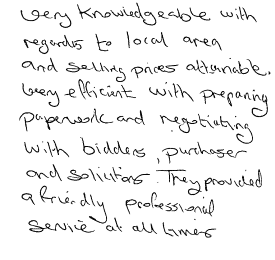 very knowledgeable with
regards to local area
and selling prices attainable.
Very efficient with preparing
paperwork and negotiating
with bidders, purchaser
and solicitors. They provided
a friendly professional
service at all times